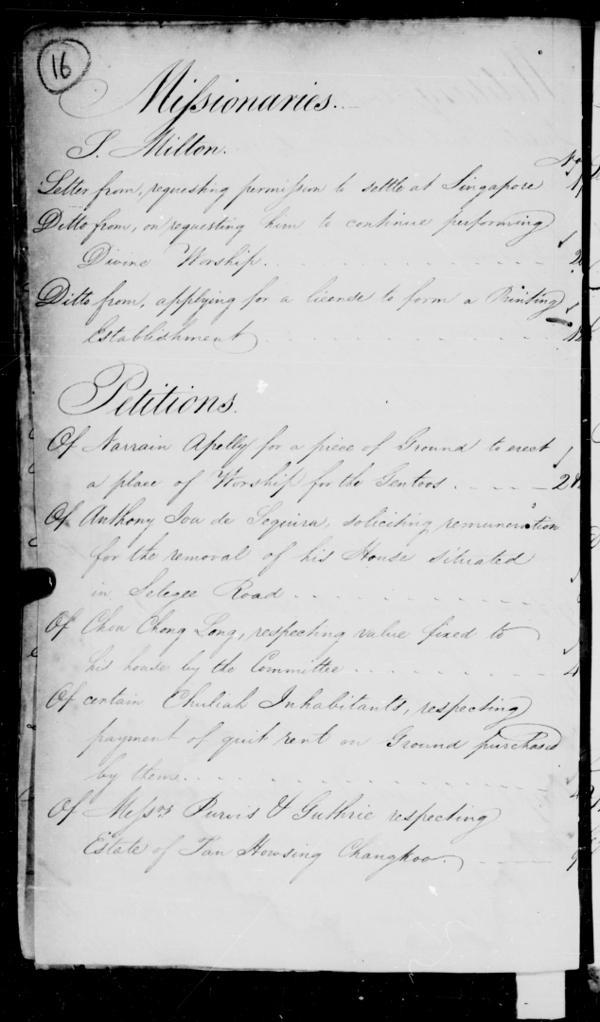 16
Missionaries.
S. Milton.
No.
Letter from, requesting permission to settle at Singapore
Ditto from, on requesting him to continue performing
Divine Worship.
Ditto from, applying for a license to form a Printing
Establishment
Petitions.
Of Narrain Apolly for a piece of Ground to erect
a place of Worship for the Gentoos
Of Anthony Joa de Sequiera, soliciting remuneration
for the removal of his House situated
in Selegee Road
Of Choa Chong Long, respecting value fixed to
his house by the Committee
Of certain Chuliah Inhabitants, respecting
payment of quit rent on Ground purchased
by them
Of Messrs Purvis & Guthrie respecting
Estate of Tan Howsing Changkoo.